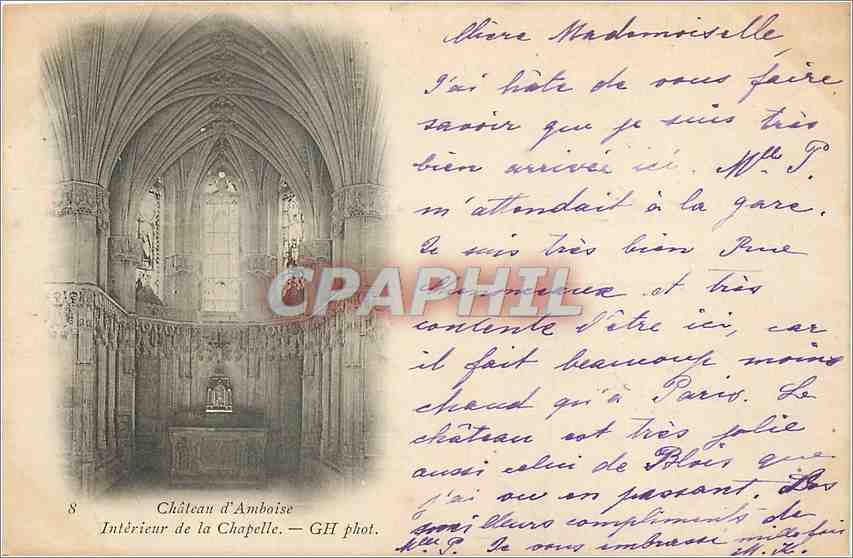 Chère Mademoiselle,
J'ai hâte de vous faire
savoir que je suis très
bien arrivée ici. Mlle P.
m'attendait à la gare.
Je suis très bien Rue
et très
contente d'être ici, car
il fait beaucoup moins
chaud qu'à Paris. Le
château est très jolie
aussi celui de Blois que
j'ai vu en passant. Les
meilleurs compliments de
Mlle P. Je vous embrasse mille fois
CPAPHIL
8 Château d'Amboise
Intérieur de la Chapelle. — GH phot.